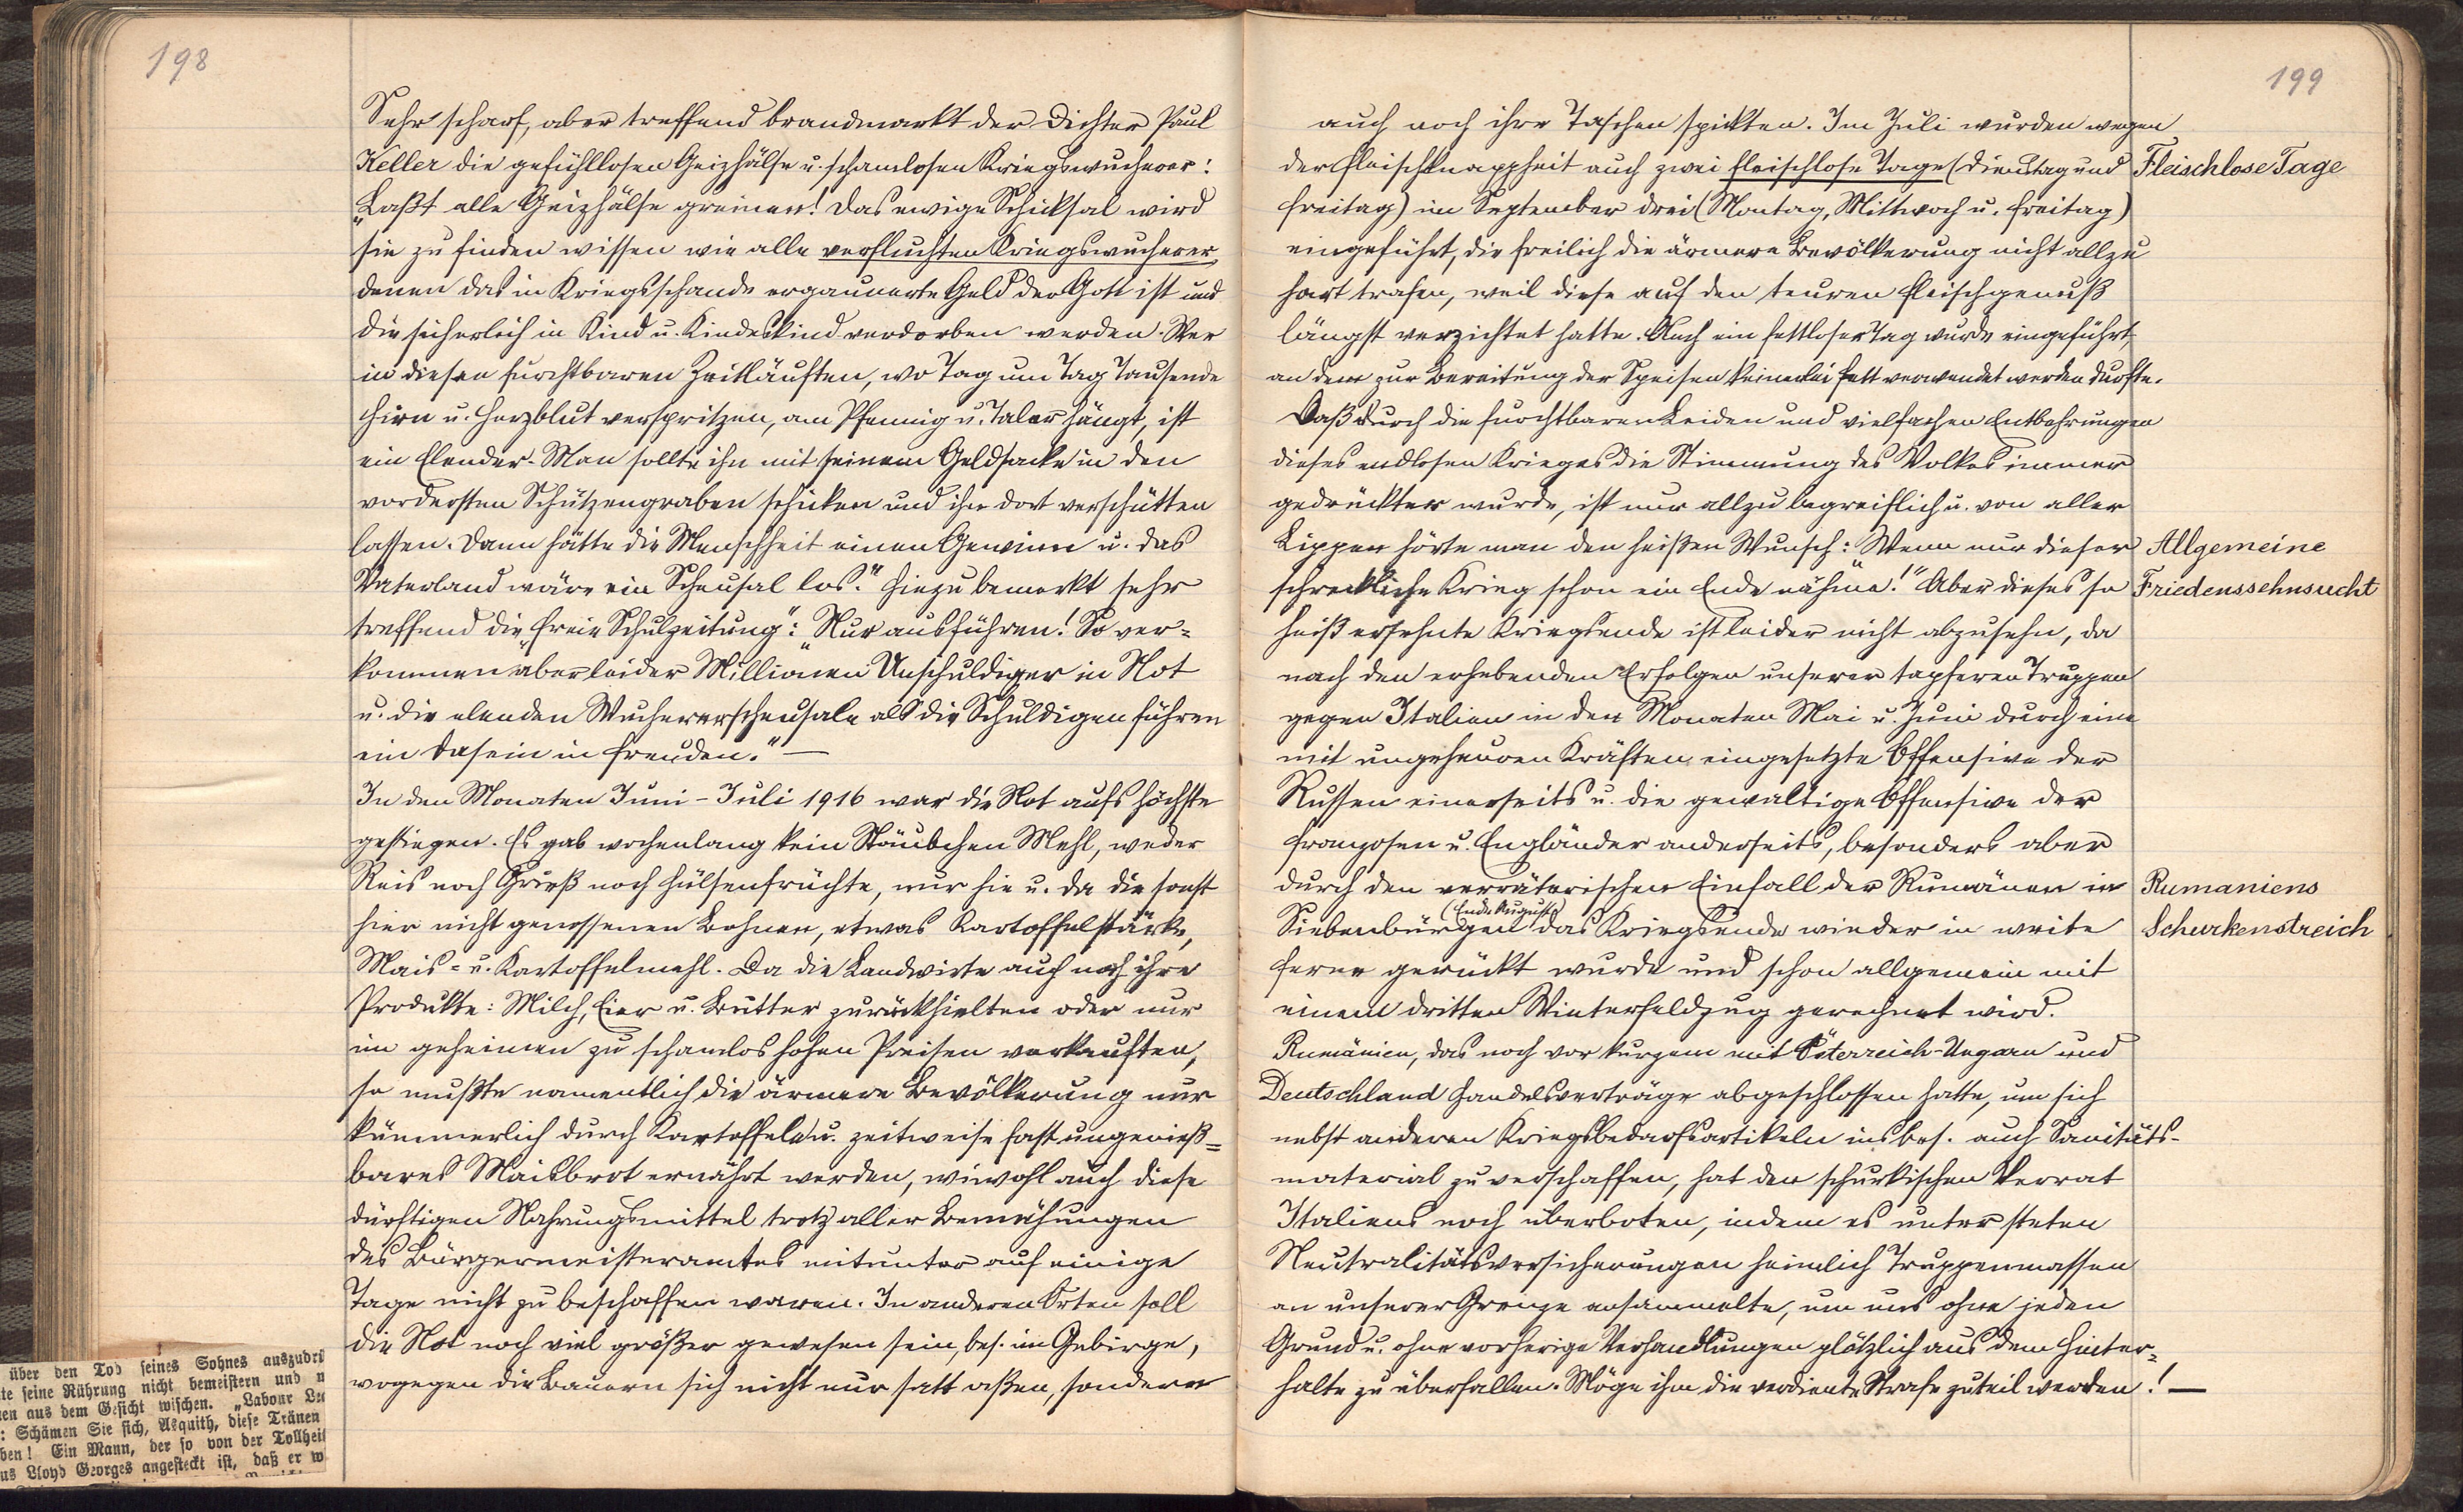 198
Sehr scharf, aber treffend brandmarkt der Dichter Paul
Keller die gefühllosen Geizhälse u. schamlosen Kriegswucherer:
„Laßt alle Geizhälse greinen! Das ewige Schicksal wird
sie zu finden wissen wie alle verfluchten Kriegswucherer,
denen das in Kriegsschande ergaunerte Geld der Gott ist und
die sicherlich in Kind u. Kindeskind verdorben werden. Wer
in diesen furchtbaren Zeitläuften, wo Tag um Tag Tausende
Hirn u. Herzblut verspritzen, am Pfennig u. Taler hängt, ist
ein Elender. Man sollte ihn mit seinem Geldsacke in den
vordersten Schützengraben schicken und ihn dort verschütten
lassen. Dann hätte die Menschheit einen Gewinn u. das
Vaterland wäre ein Scheusal los.“ Hiezu bemerkt sehr
treffend die „Freie Schulzeitung“: „Nur ausführen! So ver-
kommen aber leider Millionen Unschuldiger in Not
u. die elenden Wuchererscheusale als die Schuldigen führen
ein Dasein in Freuden.“ —
In den Monaten Juni - Juli 1916 war die Not aufs höchste
gestiegen. Es gab wochenlang kein Stäubchen Mehl, weder
Reis noch Grieß noch Hülsenfrüchte, nur hie u. da die sonst
hier nicht genossenen Bohnen, etwas Kartoffelstärke,
Mais- u. Kartoffelmehl. Da die Landwirte auch noch ihre
Produkte: Milch, Eier u. Butter zurückhielten oder nur
im geheimen zu schamlos hohen Preisen verkauften,
so mußte namentlich die ärmere Bevölkerung nur
kümmerlich durch Kartoffeln u. zeitweise fast ungenieß-
bares Maisbrot ernährt werden, wiewohl auch diese
dürftigen Nahrungsmittel trotz aller Bemühungen
des Bürgermeisteramtes mitunter auf einige
Tage nicht zu beschaffen waren. In anderen Orten soll
die Not noch viel größer gewesen sein, bes. im Gebirge,
wogegen die Bauern sich nicht nur satt aßen, sondern
über den Tod seines Sohnes auszudrü
te seine Rührung nicht bemeistern und
en aus dem Gesicht wischen. „Labour
: Schämen Sie sich, Asquith, diese Tränen
ben! Ein Mann, der so von der Tollheit
us Lloyd Georges angesteckt ist, daß er w
199
auch noch ihre Taschen spickten. Im Juli wurden wegen
der Fleischknappheit auch zwei fleischlose Tage (Dienstag und
Fleischlose Tage
Freitag) im September drei (Montag, Mittwoch u. Freitag)
eingeführt, die freilich die ärmere Bevölkerung nicht allzu
hart trafen, weil diese auf den teuren Fleischgenuß
längst verzichtet hatte. Auch ein fettloser Tag wurde eingeführt,
an dem zur Bereitung der Speisen keinerlei Fett verwendet werden durfte.
Daß durch die furchtbaren Leiden und vielfachen Entbehrungen
dieses endlosen Krieges die Stimmung des Volkes immer
gedrückter wurde, ist nur allzu begreiflich u. von aller
Lippen hörte man den heißen Wunsch: Wenn nur dieser
Allgemeine
schreckliche Krieg schon ein Ende nähme!“ Aber dieses so
Friedenssehnsucht
heiß ersehnte Kriegsende ist leider nicht abzusehn, da
nach den erhebenden Erfolgen unserer tapferen Truppen
gegen Italien in den Monaten Mai u. Juni durch eine
mit ungeheuren Kräften eingesetzte Offensive der
Russen einerseits u. die gewaltige Offensive der
Franzosen u. Engländer anderseits, besonders aber
durch den verräterischen Einfall der Rumänen in
Rumäniens
(Ende August)
Siebenbürgen das Kriegsende wieder in weite
Schurkenstreich
Ferne gerückt wurde und schon allgemein mit
einem dritten Winterfeldzug gerechnet wird.
Rumänien, das noch vor kurzem mit Österreich-Ungarn und
Deutschland Handelsverträge abgeschlossen hatte, um sich
nebst anderen Kriegsbedarfsartikeln insbes. auch Sanitäts-
material zu verschaffen, hat den schurkischen Verrat
Italiens noch überboten, indem es unter steten
Neutralitätsversicherungen heimlich Truppenmassen
an unserer Grenze ansammelte, um uns ohne jeden
Grund u. ohne vorherige Verhandlungen plötzlich aus dem Hinter-
halte zu überfallen. Möge ihm die verdiente Strafe zuteil werden! —